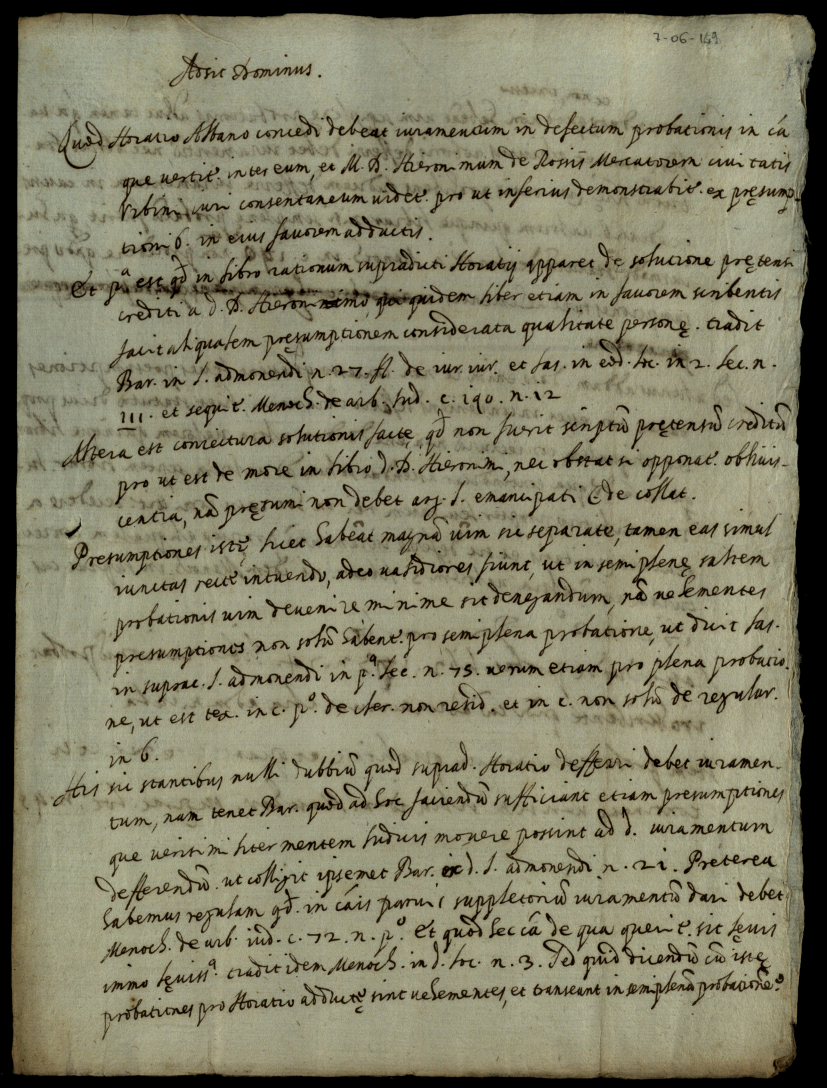 7-06-149
Adsit Dominus.
Quod Horatio Albano concedi debeat iuramentum in defectum probationis in cā
que vertit. inter eum, et M. D. Hieronimum de Rossis Mercatorem civitatis
Urbini iuri consentaneum videt. pro ut inferius demonstrabit. ex pręsump-
tionib. in eius favorem adductis.
Et pᵃ est qđ in libro rationum supraducti Horatij apparet de solutione prętensi
crediti a d. D. Hieronimo, qui quidem liber etiam in favorem scribentis
facit aliqualem pręsumptionem considerata qualitate personę. tradit
Bar. in l. admonendi n. 27. ff. de iur. iur. et Ias. in eod. loc. in 2. lec. n.
111. et sequit. Menoch. de arb. Iud. c. 190. n. 12
Altera est coniectura solutionis factę, qđ non fuerit scriptū prętensū creditū
pro ut est de more in libro d. D. Hieronimi, nec obstat si opponat. oblivis-
centia, nā pręsumi non debet arg. l. emancipati C. de collat.
Presumptiones istę licet habeāt magnā vim sic separate, tamen eas simul
iunctas recte intuendo, adeo validiores fiunt, ut in semiplenę saltem
probationis vim devenire minime sit denegandum, nā vehementes
presumptiones non solū habent. pro semiplena probatione, ut dicit Ias.
in suprac. l. admonendi in pᵃ lec. n. 73. verum etiam pro plena probatio-
ne, ut est tex. in c. pᵒ. de cler. non resid. et in c. non solū de regular.
in 6.
His sic stantibus nulli dubbiū quod suprad. Horatio defferri debet iuramen-
tum, nam tenet Bar. quod ad hoc faciendū sufficiant etiam presumptiones
que verisimiliter mentem Iudicis movere possint ad d. iuramentum
defferendū. ut colligit ipsemet Bar. in d. l. admonendi n. 21. Preterea
habemus regulam qđ. in cāis parvis suppletoriū iuramentū dari debet
Menoch. de arb. iud. c. 72. n. pᵒ. Et quod hec cā de qua querit. sit lęvis
immo lęvissᵃ. tradit idem Menoch. in d. loc. n. 3. Sed quid dicendū cū istę
probationes pro Horatio adductę sint vehementes, et transeant in semiplenā probationē?